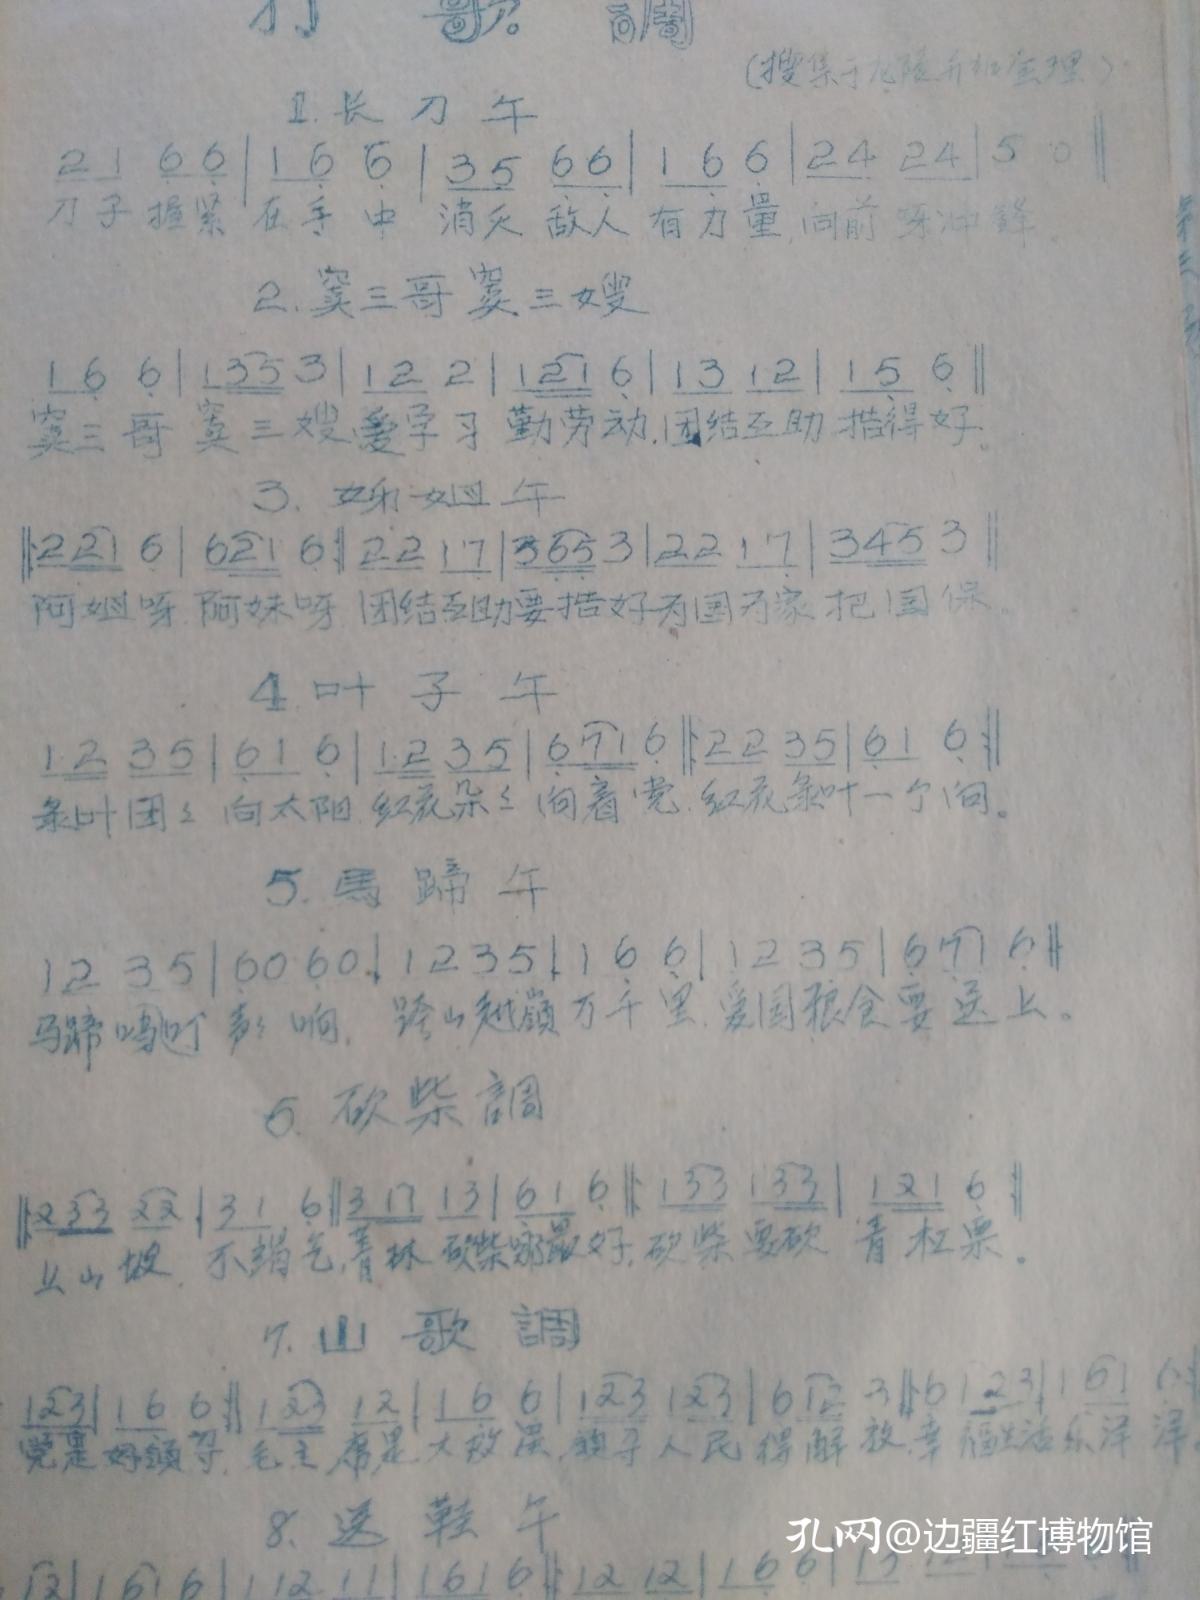 打歌調
(搜集于龙陵 整理)
1. 长刀午
21 66 | 16 6 | 35 66 | 16 6 | 24 24 | 5 0 ‖
刀子握紧 在手中 消灭敌人 有力量,向前呀冲鋒。
2. 窦三哥窦三嫂
16 6 | 135 3 | 12 2 | 121 6 | 13 12 | 15 6 ‖
窦三哥 窦三嫂 爱学习 勤劳动,团结互助 措得好。
3. 妹姐午
‖:221 6 | 621 6 :‖ 22 17 | 365 3 | 22 17 | 345 3 ‖
阿姐呀 阿妹呀 团结互助要措好 为国为家 把国保。
4. 叶子午
1·2 35 | 61 6 | 1·2 35 | 671 6 ‖: 22 35 | 61 6 :‖
条叶团々 向太阳 红花朵々 向着党,红花条叶一个向。
5. 馬蹄午
12 35 | 60 60 | 12 35 | 16 6 | 12 35 | 671 6 ‖
马蹄 响,跨山越嶺万千里,爱国粮食要送上。
6. 砍柴調
‖:233 22 | 31 6 :‖ 317 13 | 61 6 ‖: 133 133 | 121 6 :‖
上山坡,不歇气,青林砍柴 最好,砍柴要砍 青杠栗。
7. 山歌調
123 | 16 6 ‖ 123 12 | 16 6 | 123 123 | 612 3 ‖ 6 123 | 161 6
党是 好領导,毛主席是大救星,領导人民得解放,幸福生活乐洋洋。
8. 送鞋午
12 | 161 6 | 112 11 | 161 6 ‖ 12 12 | 16 6 | 13
孔网@边疆红博物馆